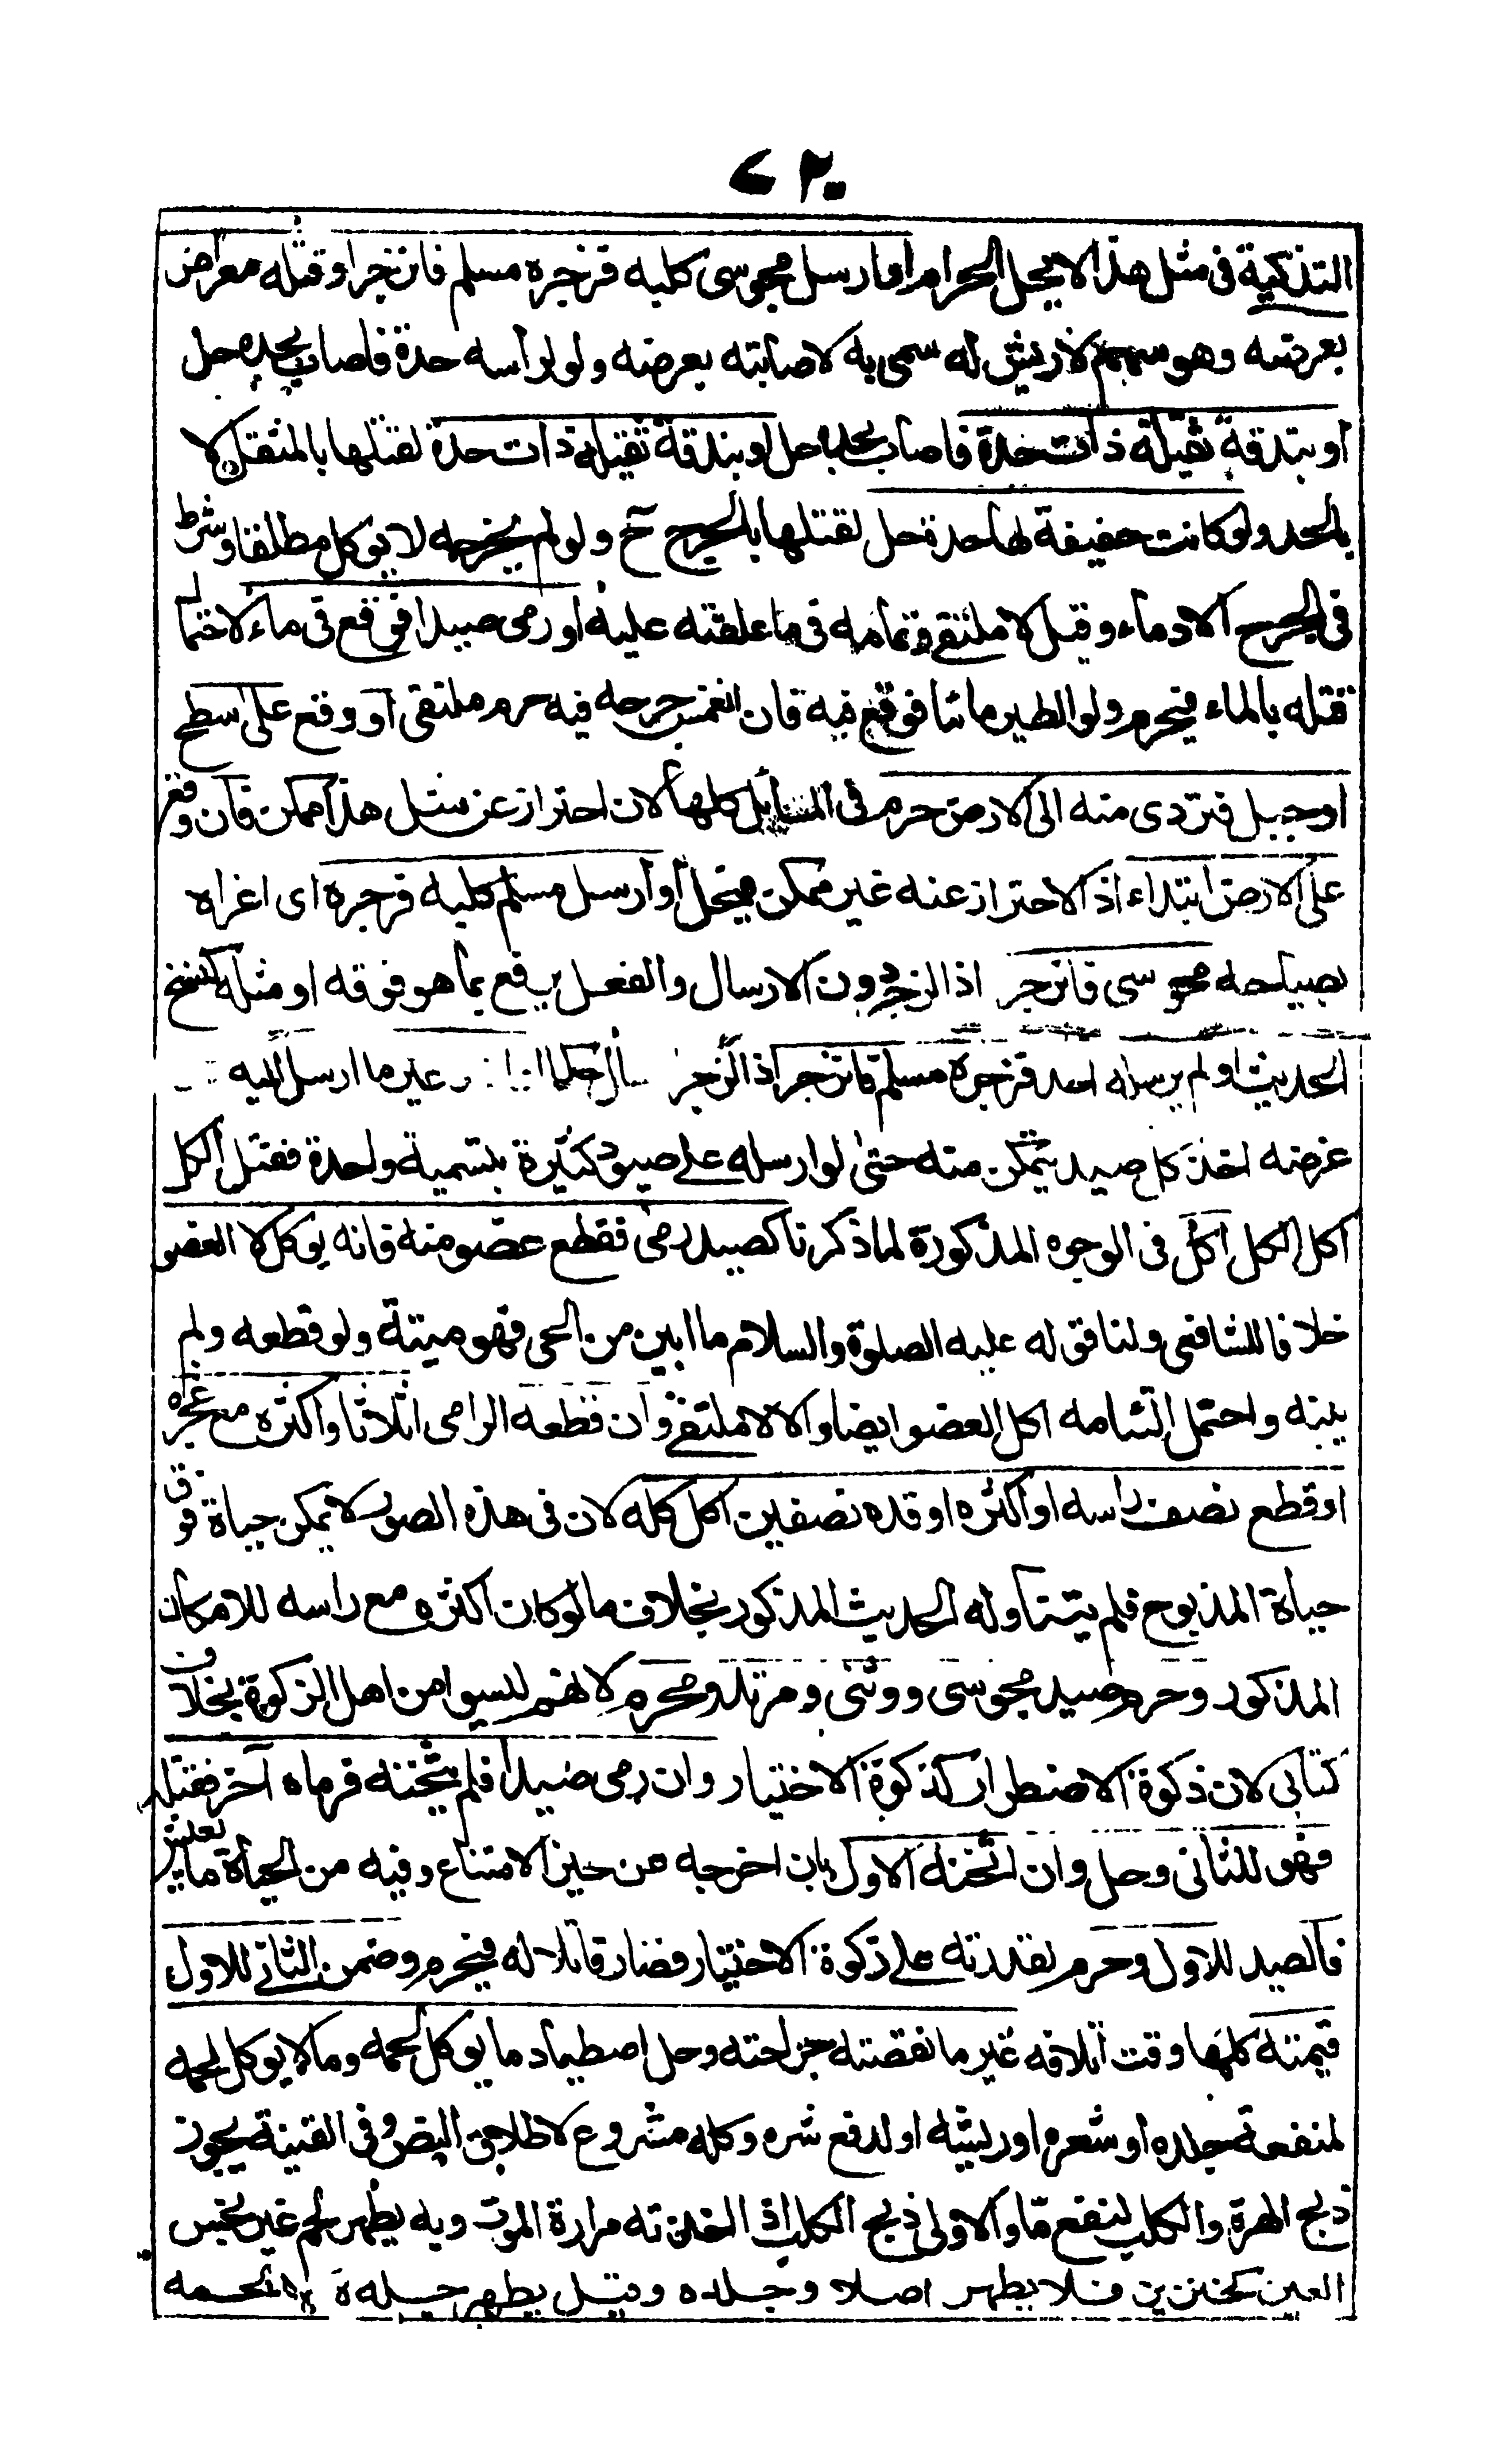 ٧٢٠
التذكية فى مثل هذا لا يحل الحرام او ارسل مجوسى كلبه فزجره مسلم فانزجر او قتله معراض
بعرضه وهو سهم لا ريش له سمى به لاصابته بعرضه ولو لرأسه حدة فاصاب بحده حل
او بندقة ثقيلة ذات حدة فاصاب بحدها حل او بندقة ثقيلة ذات حدة لقتلها بالمثقل لا
بالحد ولو كانت خفيفة لها حدة حل لقتلها بالجرح ح ولو لم يجرحه لا يؤكل مطلقا وشرط
فى الجرح الادماء وقيل لا ملتقى وتمامه فى ما علقته عليه او رمى صيدا فوقع فى ماء لاحتمال
قتله بالماء فيحرم ولو الطير مائيا فوقع فيه فان انغمس جرحه فيه حرم ملتقى او وقع على سطح
او جبل فتردى منه الى الارض حرم فى المسائل كلها لان احتراز عن مثل هذا ممكن فان وقع
على الارض ابتداء اذ الاحتراز عنه غير ممكن فيحل او ارسل مسلم كلبه فزجره اى اغراه
بصياحه مجوسى فانزجر اذ الزجر دون الارسال والفعل يرفع بما هو فوقه او مثله كنسخ
الحديث او لم يرسله احد فزجره مسلم فانزجر اذ الزجر غير ما ارسل اليه
غرضه اخذ كل صيد يتمكن منه حتى لو ارسله على صيود كثيرة بتسمية واحدة فقتل الكل
اكل الكل اكل فى الوجوه المذكورة لما ذكرنا كصيد رمى فقطع عضو منه فانه يؤكل لا العضو
خلافا للشافعى ولنا قوله عليه الصلوة والسلام ما ابين من الحى فهو ميتة ولو قطعه ولم
يبنه واحتمل التئامه اكل العضو ايضا والا لا ملتقى وان قطعه الرامى اثلاثا واكثره مع عجزه
او قطع نصف راسه او اكثره او قده نصفين اكل كله لان فى هذه الصور لا يمكن حياة فوق
حياة المذبوح فلم يتناوله الحديث المذكور بخلاف ما لو كان اكثره مع راسه للامكان
المذكور وحرم صيد مجوسى ووثنى ومرتد ومحرم لانهم ليسوا من اهل الزكوة بخلاف
كتابى لان ذكوة الاضطرار كذكوة الاختيار وان رمى صيدا فلم يثخنه فرماه آخر فقتله
فهو للثانى وحل وان اثخنه الاول بان اخرجه من حيز الامتناع وفيه من الحياة ما يعيش
فالصيد للاول وحرم لقدرته على ذكوة الاختيار فصار قاتلا له فيحرم وضمن الثانى للاول
قيمته كلها وقت اتلافه غير ما نقصته جراحته وحل اصطياد ما يؤكل لحمه وما لا يؤكل لحمه
لمنفعة جلده او شعره او ريشه او لدفع شره وكله مشروع لاطلاق النص وفى القنية يجوز
ذبح الهرة والكلب لنفع ما والاولى ذبح الكلب اذا اخذته مرارة الموت وبه يطهر لحم غير نجس
العين كخنزير فلا يطهر اصلا وجلده وقيل يطهر جلده لا لحمه